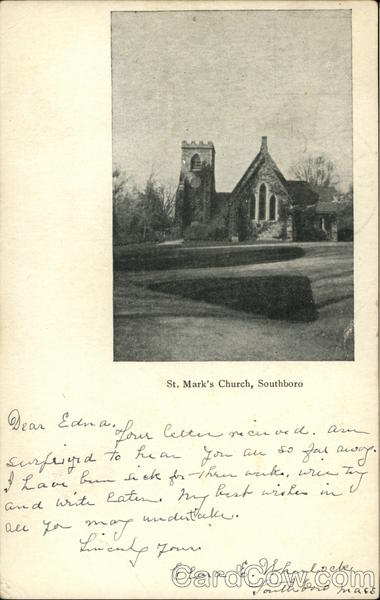 St. Mark's Church, Southboro
Dear Edna.
Your letter received. am
surprised to hear you are so far away.
I have been sick for three weeks, will try
and write later. My best wishes in
all you may undertake.
Sincerely yours.
Clara E.
Southboro Mass
CardCow.com